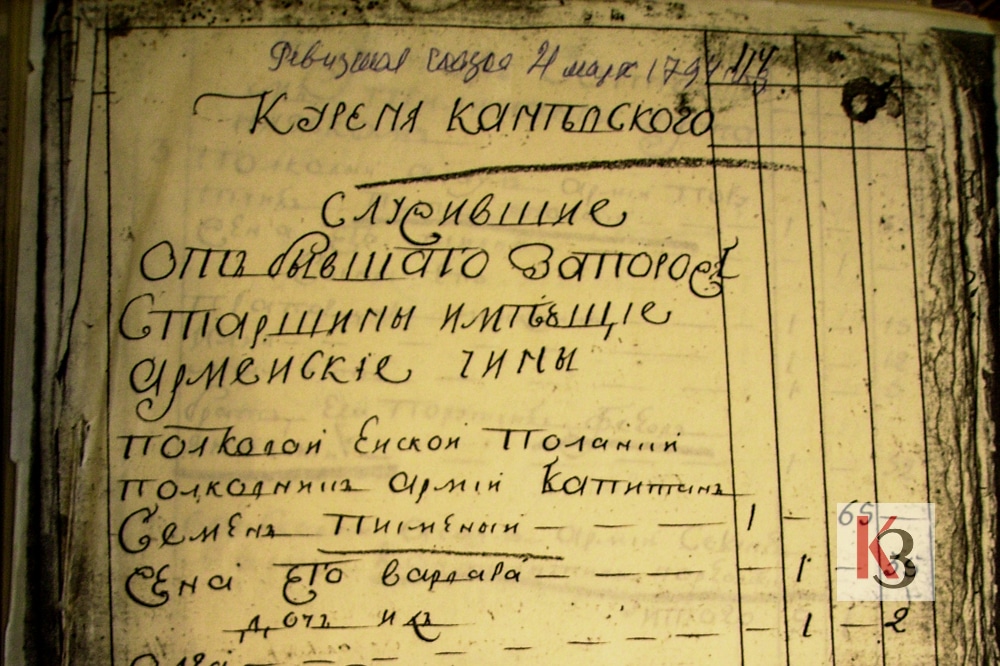 Ревизская сказка 4 март 1794
114
Куреня Канѣвского
Служившие
Отъ бывшаго Запорожъ
Старшины имѣющіе
армейскіе чины
полковой
полковникъ армій Капитанъ
Семенъ Писменый — — — 1 — 65
Жена его варвара — — — 1 —
дочъ ихъ — 1 — 2
КЗ